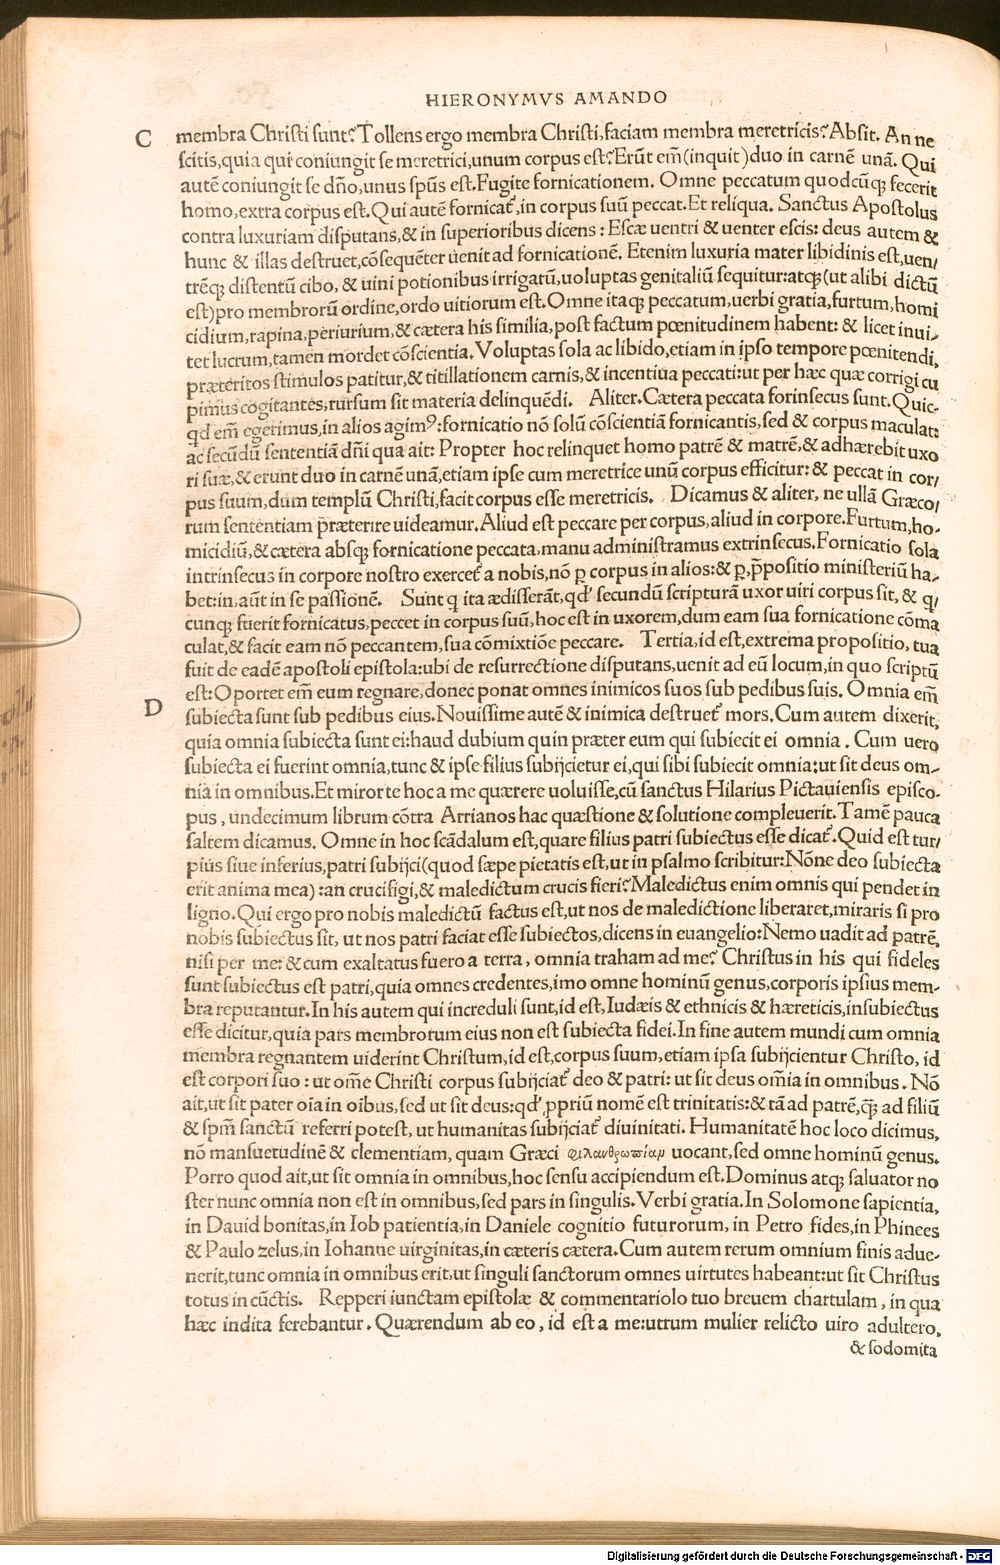 HIERONYMVS AMANDO
C membra Christi sunt? Tollens ergo membra Christi, faciam membra meretricis? Absit. An ne
scitis, quia qui coniungit se meretrici, unum corpus est? Erũt em̃(inquit)duo in carnẽ unã. Qui
autẽ coniungit se dño, unus sp̃us est. Fugite fornicationem. Omne peccatum quodcũqꝫ fecerit
homo, extra corpus est. Qui autẽ fornicat᷑, in corpus suũ peccat. Et reliqua. Sanctus Apostolus
contra luxuriam disputans, & in superioribus dicens: Escæ uentri & uenter escis: deus autem &
hunc & illas destruet, cõsequẽter uenit ad fornicationẽ. Etenim luxuria mater libidinis est, uen/
trẽqꝫ distentũ cibo, & uini potionibus irrigatũ, uoluptas genitaliũ sequitur: atqꝫ(ut alibi dictũ
est)pro membrorũ ordine, ordo uitiorum est. Omne itaqꝫ peccatum, uerbi gratia, furtum, homi
cidium, rapina, periurium, & cætera his similia, post factum pœnitudinem habent: & licet inui-
tet lucrum, tamen mordet cõscientia. Voluptas sola ac libido, etiam in ipso tempore pœnitendi,
præteritos stimulos patitur, & titillationem carnis, & incentiua peccati: ut per hæc quæ corrigi cu
pimus cogitantes, rursum sit materia delinquẽdi. Aliter. Cætera peccata forinsecus sunt. Quic-
qd em̃ egerimus, in alios agimꝰ: fornicatio nõ solũ cõscientiã fornicantis, sed & corpus maculat:
ac secũdũ sententiã dñi qua ait: Propter hoc relinquet homo patrẽ & matrẽ, & adhærebit uxo
ri suæ, & erunt duo in carnẽ unã, etiam ipse cum meretrice unũ corpus efficitur: & peccat in cor/
pus suum, dum templũ Christi, facit corpus esse meretricis. Dicamus & aliter, ne ullã Græco/
rum sententiam præterire uideamur. Aliud est peccare per corpus, aliud in corpore. Furtum, ho-
micidiũ, & cætera absqꝫ fornicatione peccata, manu administramus extrinsecus. Fornicatio sola
intrinsecus in corpore nostro exercet᷑ a nobis, nõ ꝑ corpus in alios: & ꝑ, p̃positio ministeriũ ha-
bet: in, aũt in se passionẽ. Sunt q ita ædisserãt, qd' secundũ scripturã uxor uiri corpus sit, & q/
cunqꝫ fuerit fornicatus, peccet in corpus suũ, hoc est in uxorem, dum eam sua fornicatione cõma
culat, & facit eam nõ peccantem, sua cõmixtiõe peccare. Tertia, id est, extrema propositio, tua
fuit de eadẽ apostoli epistola: ubi de resurrectione disputans, uenit ad eũ locum, in quo scriptũ
est: Oportet em̃ eum regnare, donec ponat omnes inimicos suos sub pedibus suis. Omnia em̃
D subiecta sunt sub pedibus eius. Nouissime autẽ & inimica destruet᷑ mors. Cum autem dixerit,
quia omnia subiecta sunt ei: haud dubium quin præter eum qui subiecit ei omnia. Cum uero
subiecta ei fuerint omnia, tunc & ipse filius subijcietur ei, qui sibi subiecit omnia: ut sit deus om-
nia in omnibus. Et miror te hoc a me quærere uoluisse, cũ sanctus Hilarius Pictauiensis episco-
pus, undecimum librum cõtra Arrianos hac quæstione & solutione compleuerit. Tamẽ pauca
saltem dicamus. Omne in hoc scãdalum est, quare filius patri subiectus esse dicat᷑. Quid est tur/
pius siue inferius, patri subijci(quod sæpe pietatis est, ut in psalmo scribitur: Nõne deo subiecta
erit anima mea): an crucifigi, & maledictum crucis fieri? Maledictus enim omnis qui pendet in
ligno. Qui ergo pro nobis maledictũ factus est, ut nos de maledictione liberaret, miraris si pro
nobis subiectus sit, ut nos patri faciat esse subiectos, dicens in euangelio: Nemo uadit ad patrẽ,
nisi per me: & cum exaltatus fuero a terra, omnia traham ad me? Christus in his qui fideles
sunt subiectus est patri, quia omnes credentes, imo omne hominũ genus, corporis ipsius mem-
bra reputantur. In his autem qui increduli sunt, id est, Iudæis & ethnicis & hæreticis, insubiectus
esse dicitur, quia pars membrorum eius non est subiecta fidei. In fine autem mundi cum omnia
membra regnantem uiderint Christum, id est, corpus suum, etiam ipsa subijcientur Christo, id
est corpori suo: ut om̃e Christi corpus subijciat᷑ deo & patri: ut sit deus om̃ia in omnibus. Nõ
ait, ut sit pater oĩa in oĩbus, sed ut sit deus: qd' ꝓpriũ nomẽ est trinitatis: & tã ad patrẽ, q̃ꝫ ad filiũ
& sp̃m sanctũ referri potest, ut humanitas subijciat᷑ diuinitati. Humanitatẽ hoc loco dicimus,
nõ mansuetudinẽ & clementiam, quam Græci φιλανθρωπίαμ uocant, sed omne hominũ genus.
Porro quod ait, ut sit omnia in omnibus, hoc sensu accipiendum est. Dominus atqꝫ saluator no
ster nunc omnia non est in omnibus, sed pars in singulis. Verbi gratia. In Solomone sapientia,
in Dauid bonitas, in Iob patientia, in Daniele cognitio futurorum, in Petro fides, in Phinees
& Paulo zelus, in Iohanne uirginitas, in cæteris cætera. Cum autem rerum omnium finis adue-
nerit, tunc omnia in omnibus erit, ut singuli sanctorum omnes uirtutes habeant: ut sit Christus
totus in cũctis. Repperi iunctam epistolæ & commentariolo tuo breuem chartulam, in qua
hæc indita ferebantur. Quærendum ab eo, id est a me: utrum mulier relicto uiro adultero,
& sodomita
Digitalisierung gefördert durch die Deutsche Forschungsgemeinschaft - DFG